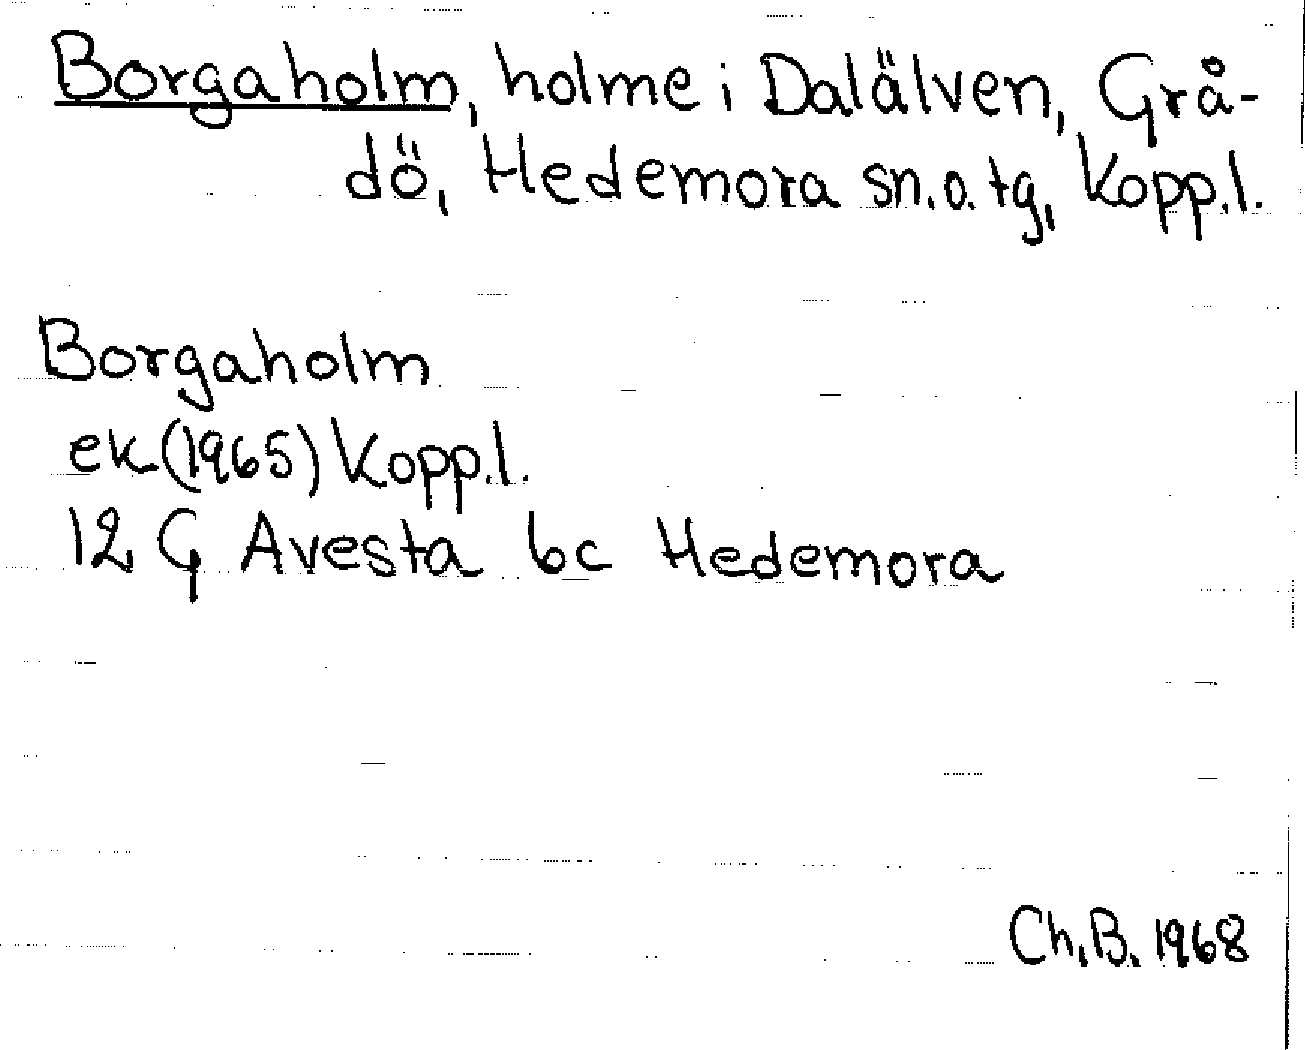 Borgaholm, holme i Dalälven, Grå-
dö, Hedemora sn. o. tg, Kopp.l.
Borgaholm
ek (1965) Kopp.l.
12 G Avesta 6c Hedemora
Ch.B. 1968